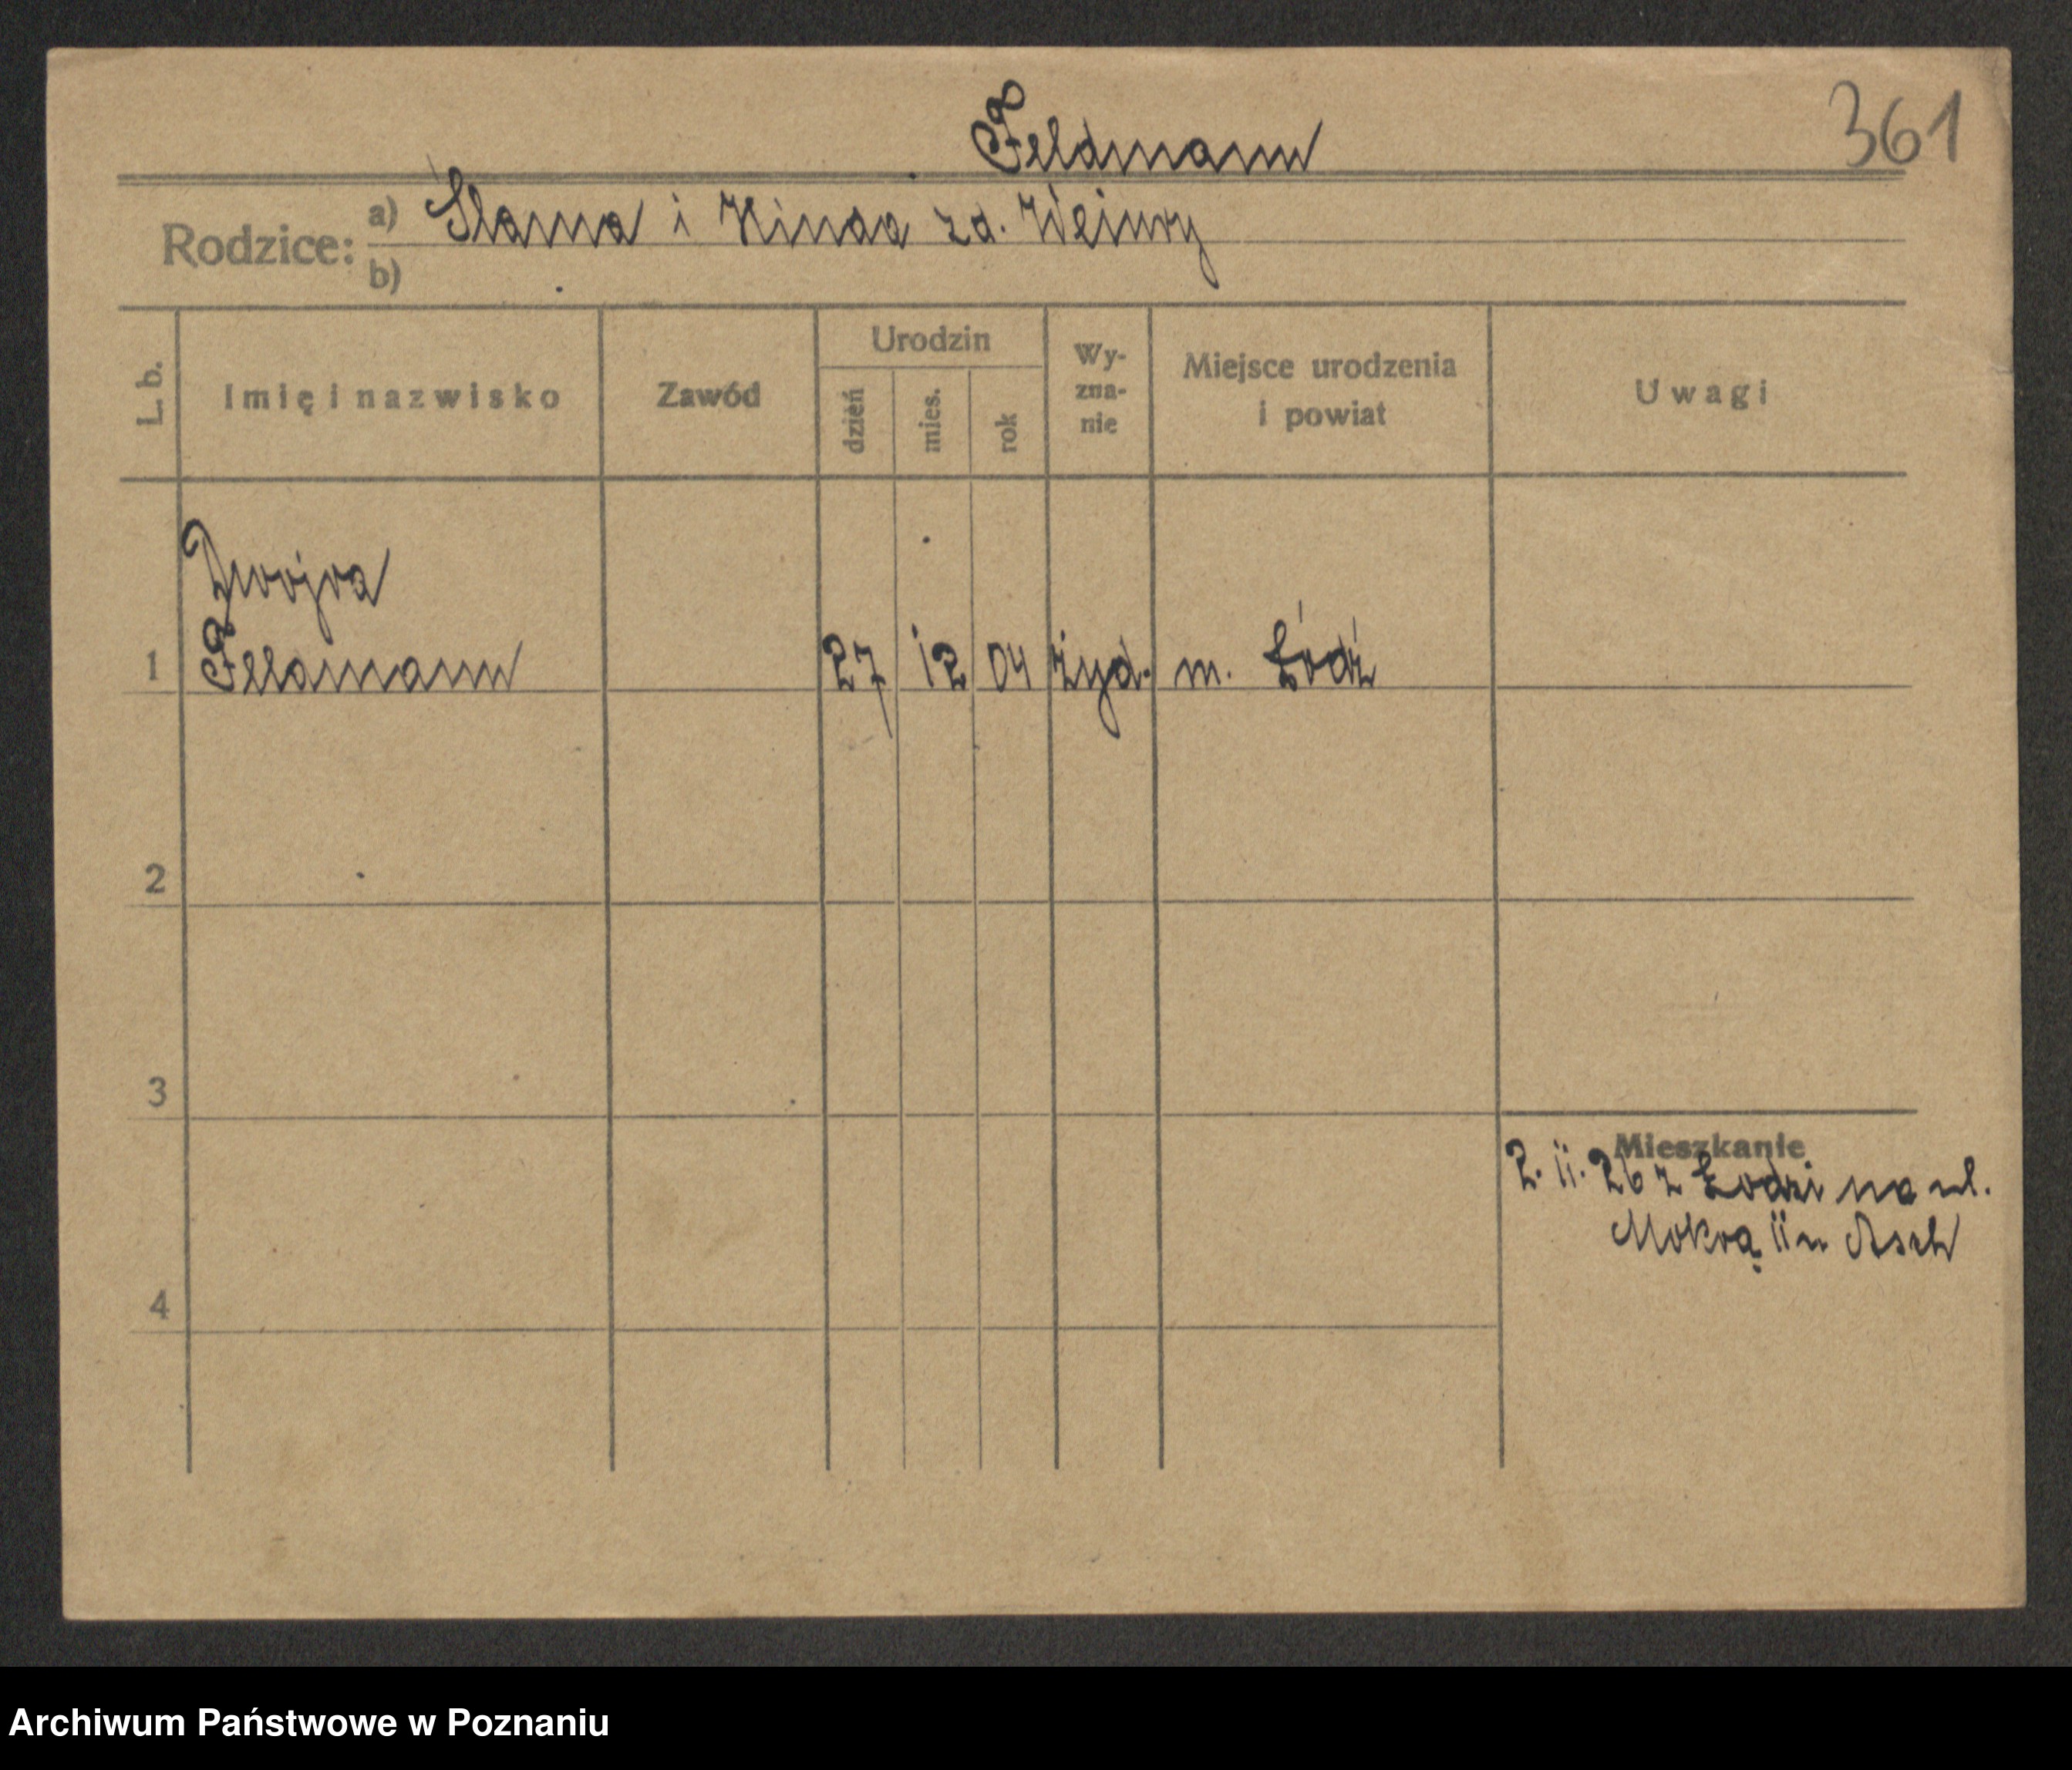 Feldmann
361
Rodzice: a) Slama i Hinda zd. Wejnry
b)
L. b. Imię i nazwisko Zawód Urodzin dzień mies. rok Wy-zna-nie Miejsce urodzenia i powiat Uwagi
Dwojra
1 Feldmann 27 12 04 żyd. m. Łódź
2
3
Mieszkanie
2. 11. 26 z Łodzi na ul.
Mokrą 11 u Asch
4
Archiwum Państwowe w Poznaniu